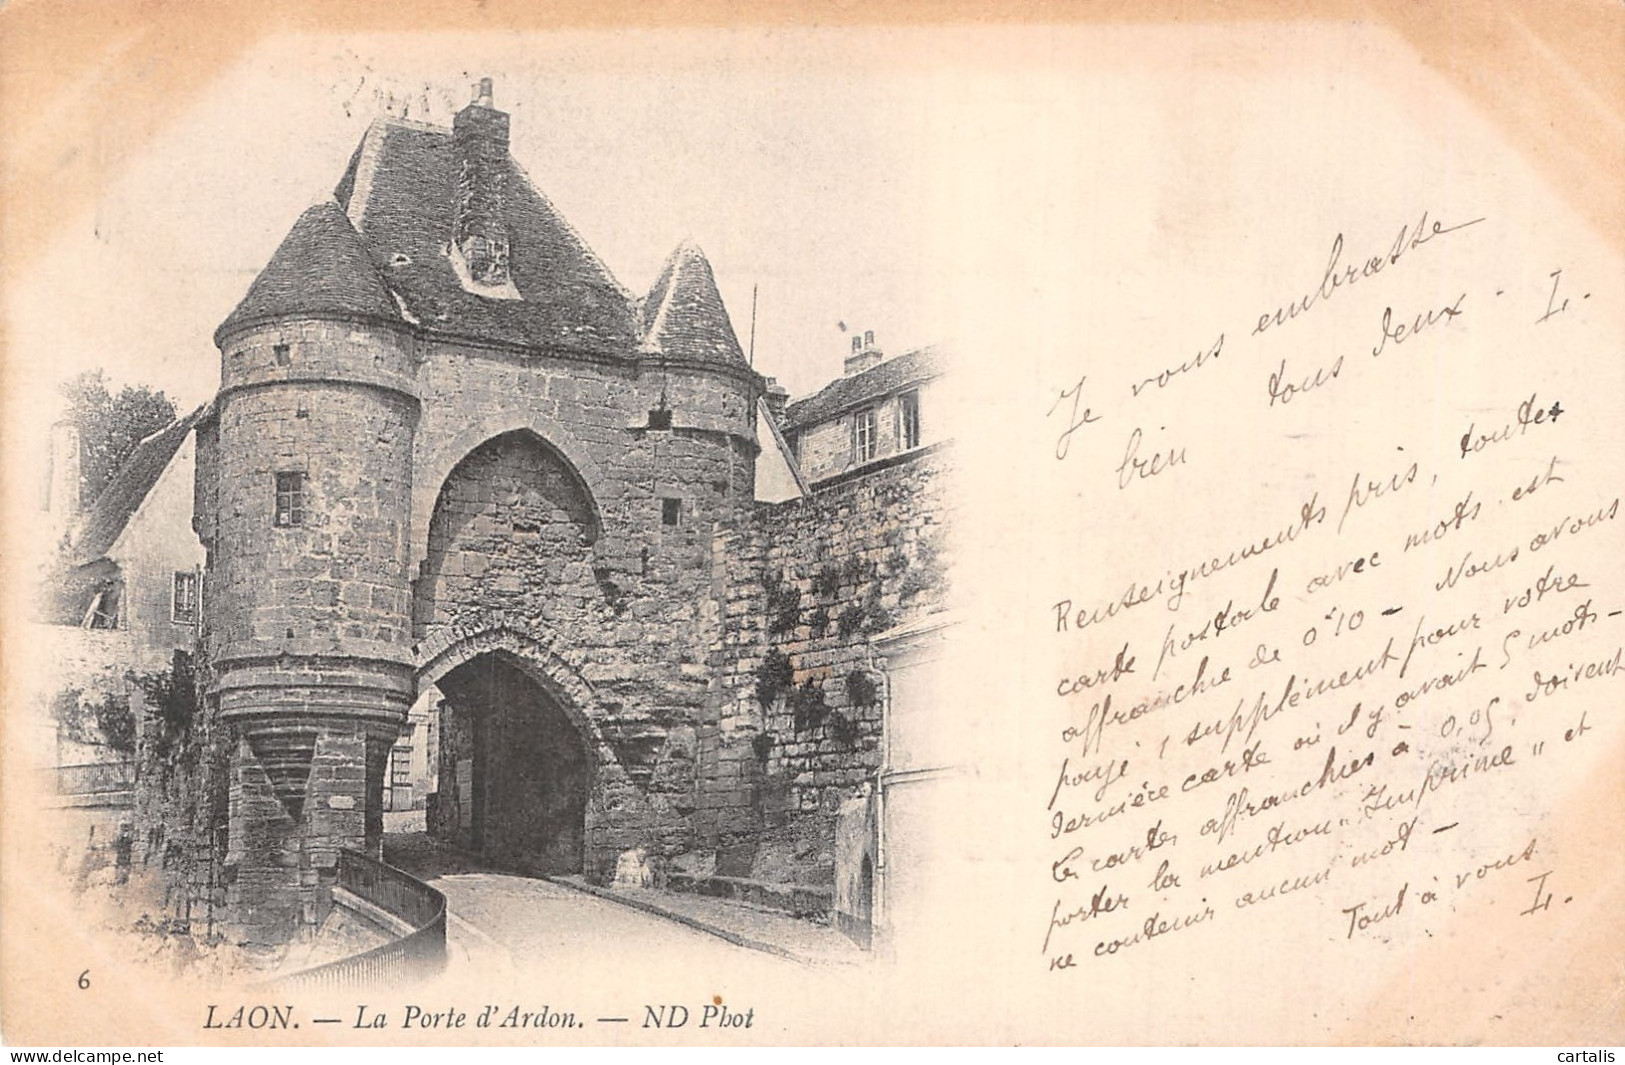 Je vous embrasse
bien tous deux. L.
Renseignements pris, toutes
carte postale avec mots est
affranchie de 0f10 - Nous avons
payé 1 supplément pour votre
dernière carte où il y avait 5 mots -
Les cartes affranchies à 0,05, doivent
porter la mention "Imprimé" et
ne contenir aucun mot -
Tout à vous
L.
6
LAON. — La Porte d'Ardon. — ND Phot
www.delcampe.net
cartalis